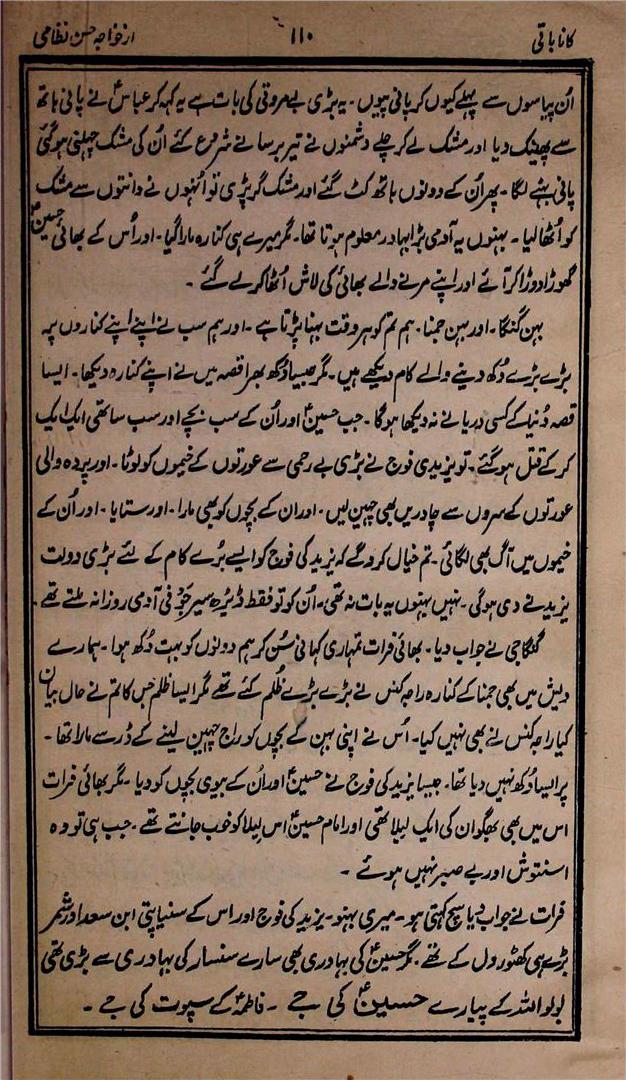 کانا باتی ۱۱۰ از خواجہ حسن نظامی
اُن پیاسوں سے پہلے کیوں کر پانی پیوں ۔ یہ بڑی بے مروتی کی بات ہے یہ کہہ کر عباسؑ نے پانی ہاتھ
سے پھینک دیا اور مشک لے کر چلے دشمنوں نے تیر برسانے شروع کئے اُن کی مشک چھلنی ہوگئی
پانی بہنے لگا ۔ پھر اُن کے دونوں ہاتھ کٹ گئے اور مشک گر پڑی تو اُنہوں نے دانتوں سے مشک
کو اُٹھا لیا ۔ بہنوں یہ آدمی بڑا بہادر معلوم ہوتا تھا ۔ مگر میرے ہی کنارہ مارا گیا ۔ اور اُس کے بھائی حسینؑ
گھوڑا دوڑا کر آئے اور اپنے مرنے والے بھائی کی لاش اُٹھا کر لے گئے ۔
بہن گنگا ۔ اور بہن جمنا ۔ ہم تم کو ہر وقت بہنا پڑتا ہے ۔ اور ہم سب نے اپنے اپنے کناروں پر
بڑے بڑے دُکھ دینے والے کام دیکھے ہیں ۔ مگر جیسا دُکھ بھرا قصہ میں نے اپنے کنارہ دیکھا ۔ ایسا
قصہ دُنیا کے کسی دریا نے نہ دیکھا ہوگا ۔ جب حسینؑ اور اُن کے سب بچے اور سب ساتھی ایک ایک
کر کے قتل ہوگئے ۔ تو یزیدی فوج نے بڑی بے رحمی سے عورتوں کے خیموں کو لوٹا ۔ اور پردہ والی
عورتوں کے سروں سے چادریں بھی چھین لیں ۔ اور ان کے بچوں کو بھی مارا ۔ اور ستایا ۔ اور اُن کے
خیموں میں آگ بھی لگائی ۔ تم خیال کرو گے کہ یزید کی فوج کو ایسے بُرے کام کے لئے بڑی دولت
یزید نے دی ہوگی ۔ نہیں بہنوں یہ بات نہ تھی ۔ اُن کو تو فقط ڈیڑھ سیر جَو فی آدمی روزانہ ملتے تھے ۔
گنگا جی نے جواب دیا ۔ بھائی فرات تمہاری کہانی سُن کر ہم دونوں کو بہت دُکھ ہوا ۔ ہمارے
دیش میں بھی جمنا کے کنارہ راجہ کنس نے بڑے بڑے ظُلم کئے تھے مگر ایسا ظلم جس کا تم نے حال بیان
کیا راجہ کنس نے بھی نہیں کیا ۔ اُس نے اپنی بہن کے بچوں کو راج چھین لینے کے ڈر سے مارا تھا ۔
پر ایسا دُکھ نہیں دیا تھا ۔ جیسا یزید کی فوج نے حسینؑ اور اُن کے بیوی بچوں کو دیا ۔ مگر بھائی فرات
اس میں بھی بھگوان کی ایک لیلا تھی اور امام حسینؑ اس لیلا کو خوب جانتے تھے ۔ جب ہی تو وہ
اسنتوش اور بے صبر نہیں ہوئے ۔
فرات نے جواب دیا سچ کہتی ہو ۔ میری بہنو ۔ یزید کی فوج اور اس کے سنیاپتی ابن سعد اور شمر
بڑے ہی کٹھور دل کے تھے ۔ مگر حسینؑ کی بہادری بھی سارے سنسار کی بہادری سے بڑی تھی
بولو اللہ کے پیارے حسینؑ کی جے ۔ فاطمہؑ کے سپوت کی جے ۔